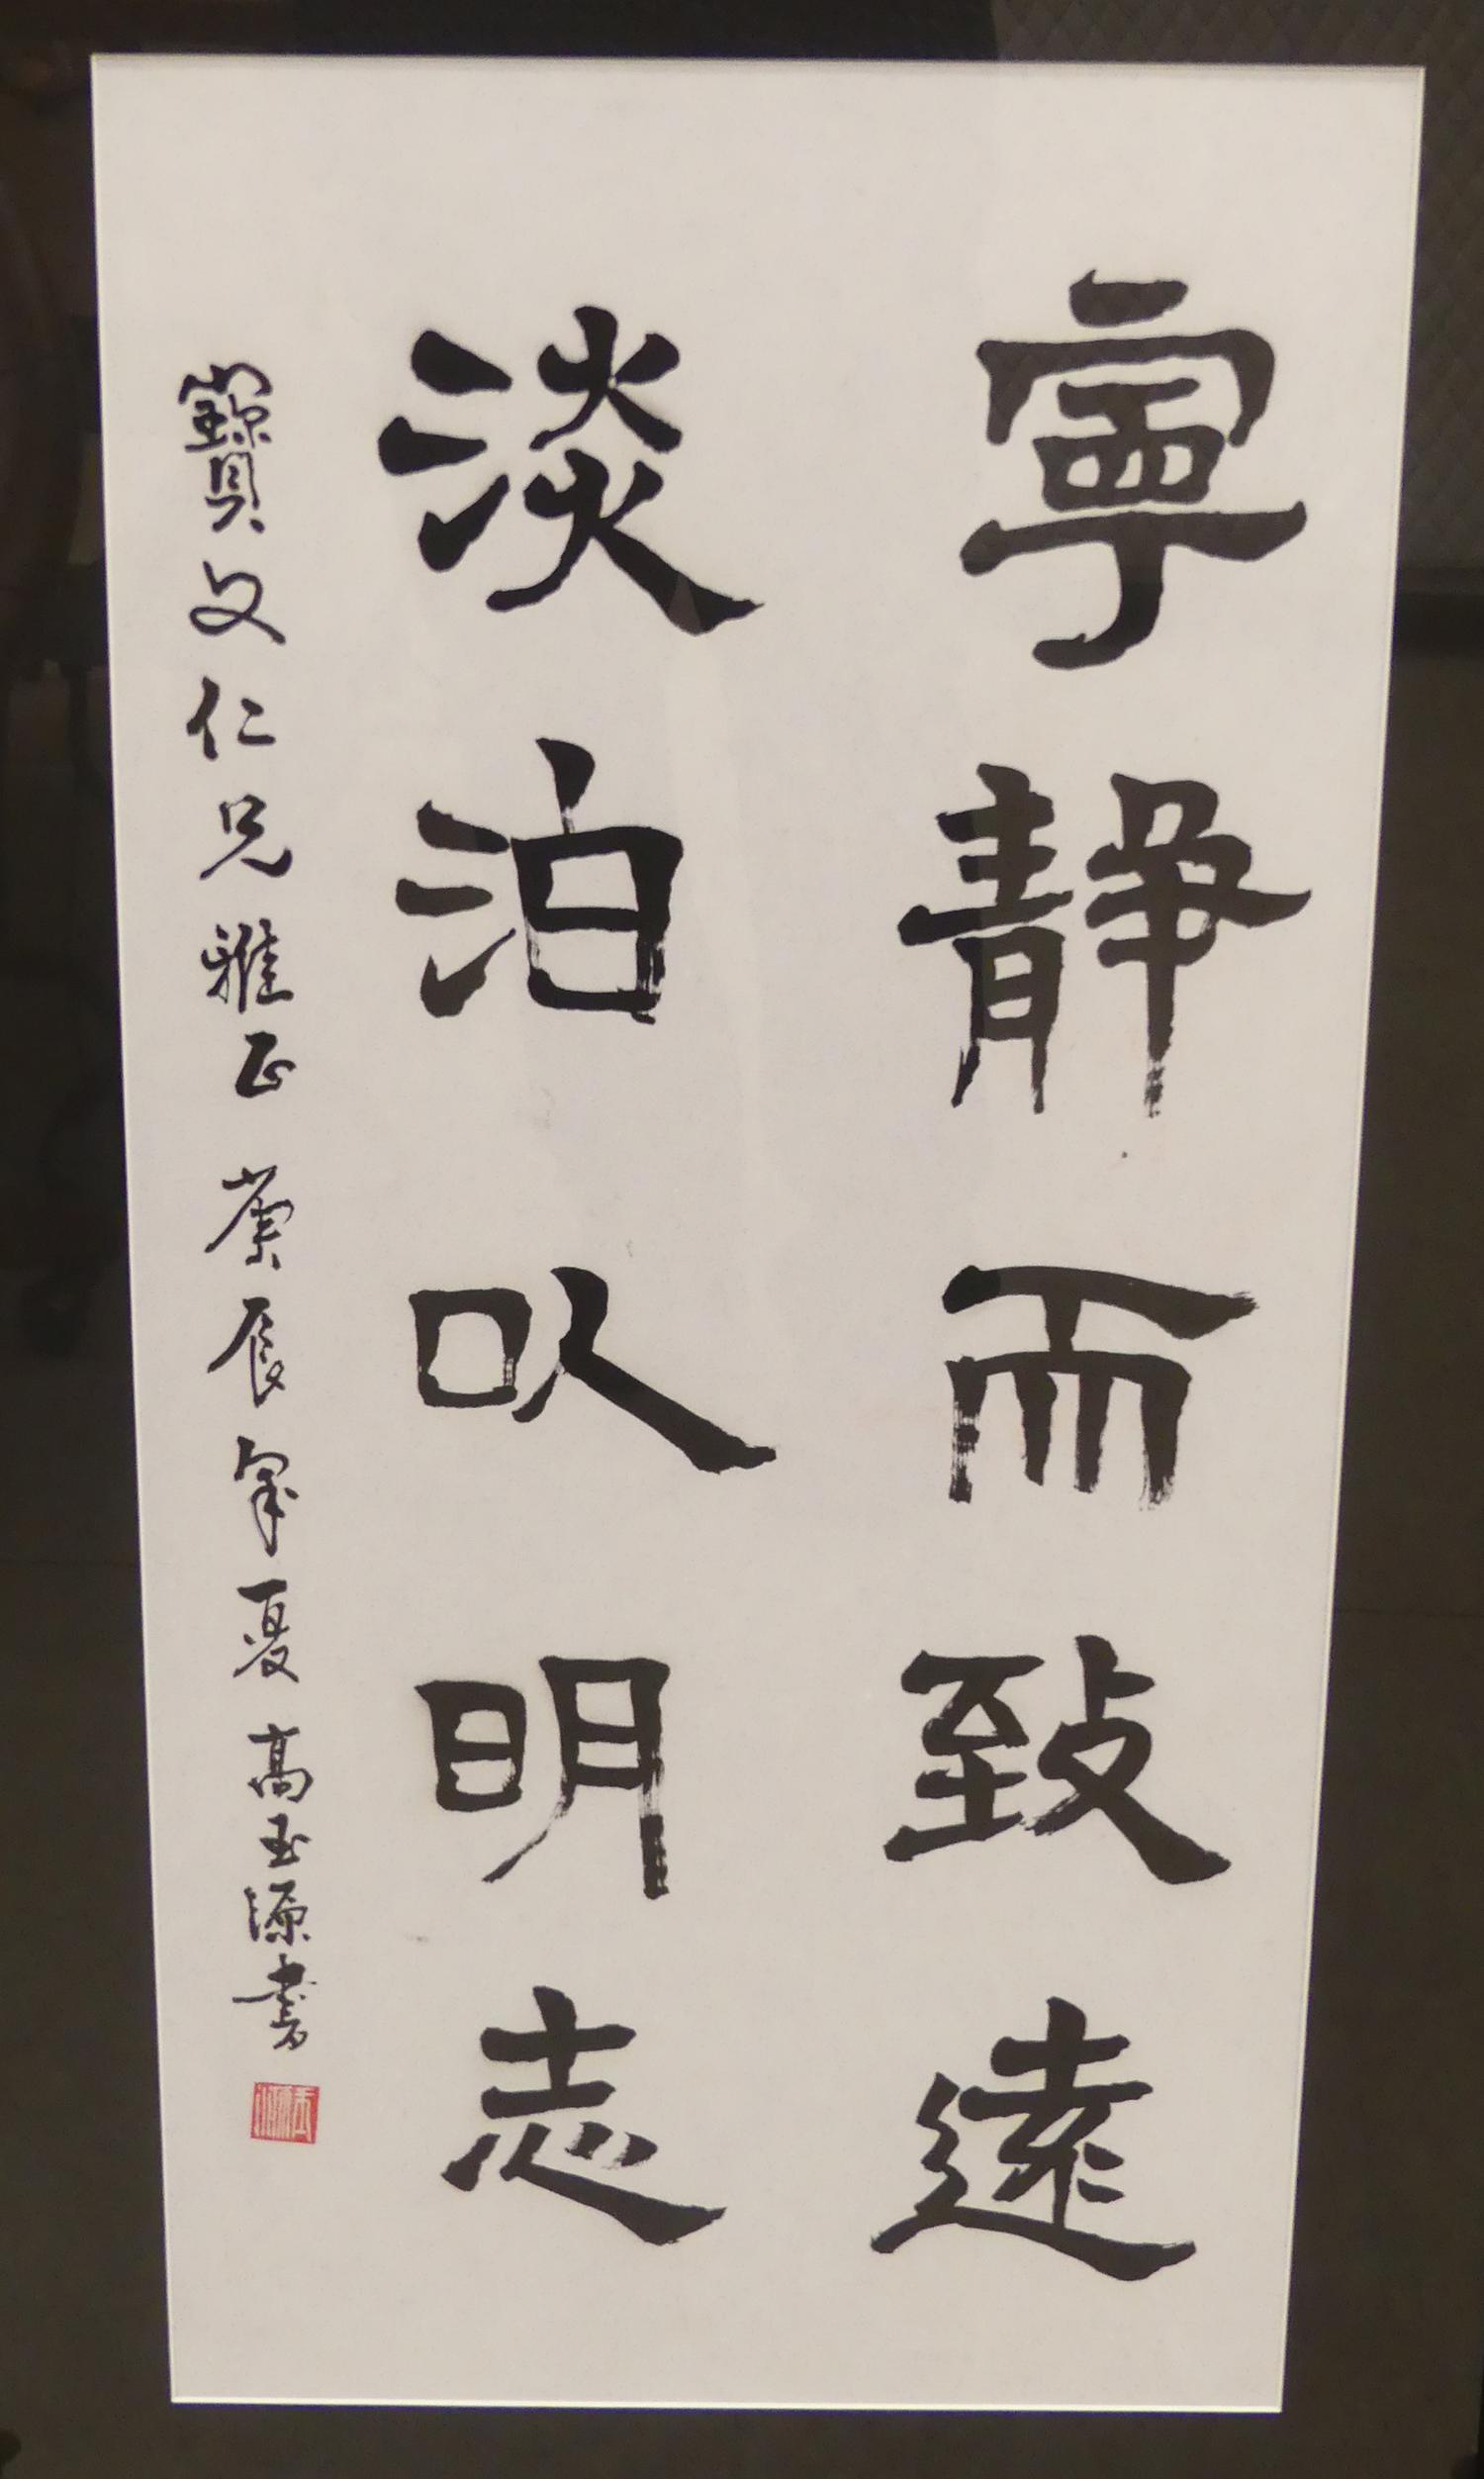 寧靜而致遠
淡泊以明志
寶文仁兄雅正 辰夏 高玉源書